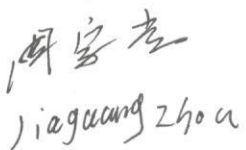 周家光
Jiaguang Zhou